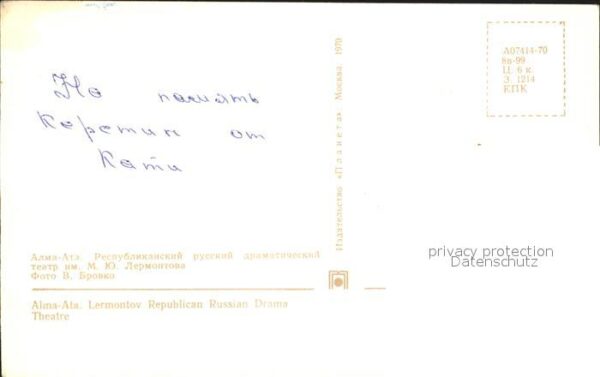 На память
Керстин от
Кати
Алма-Ата. Республиканский русский драматический
театр им. М. Ю. Лермонтова
Фото В. Бровко
Alma-Ata. Lermontov Republican Russian Drama
Theatre
Издательство «Планета». Москва. 1970
А07414-70
8в-99
Ц. 6 к.
З. 1214
ЕПК
privacy protection
Datenschutz